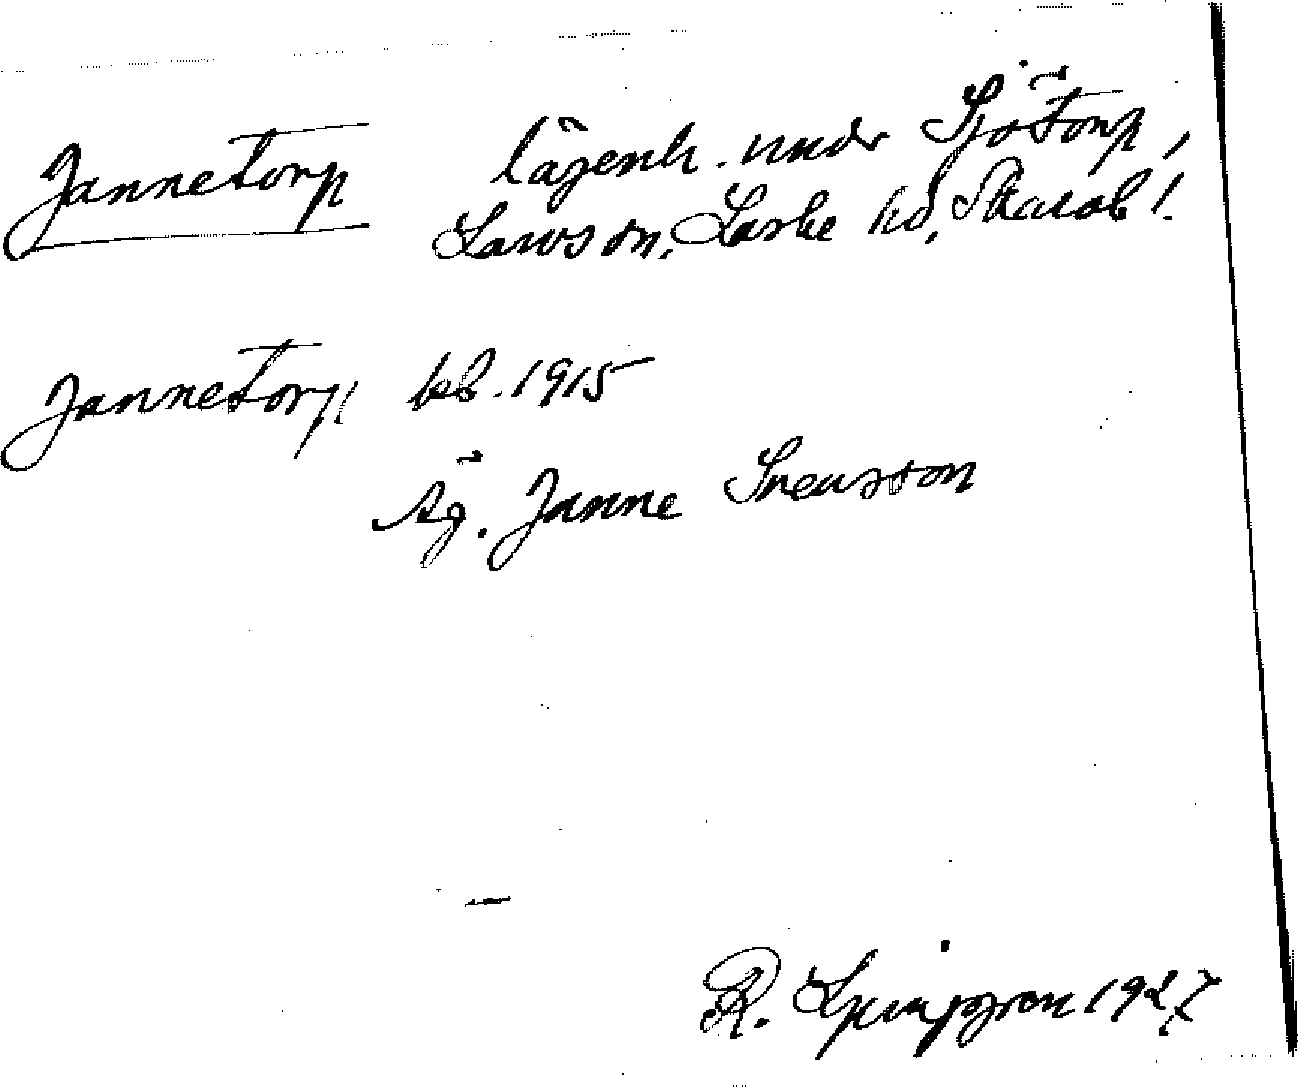 Jannetorp lägenh. under Sjötorp,
Larvs sn, Laske hd, Skarab l.
Jannetorp beb. 1915
Äg. Janne Svensson
R. Ljunggren 1927